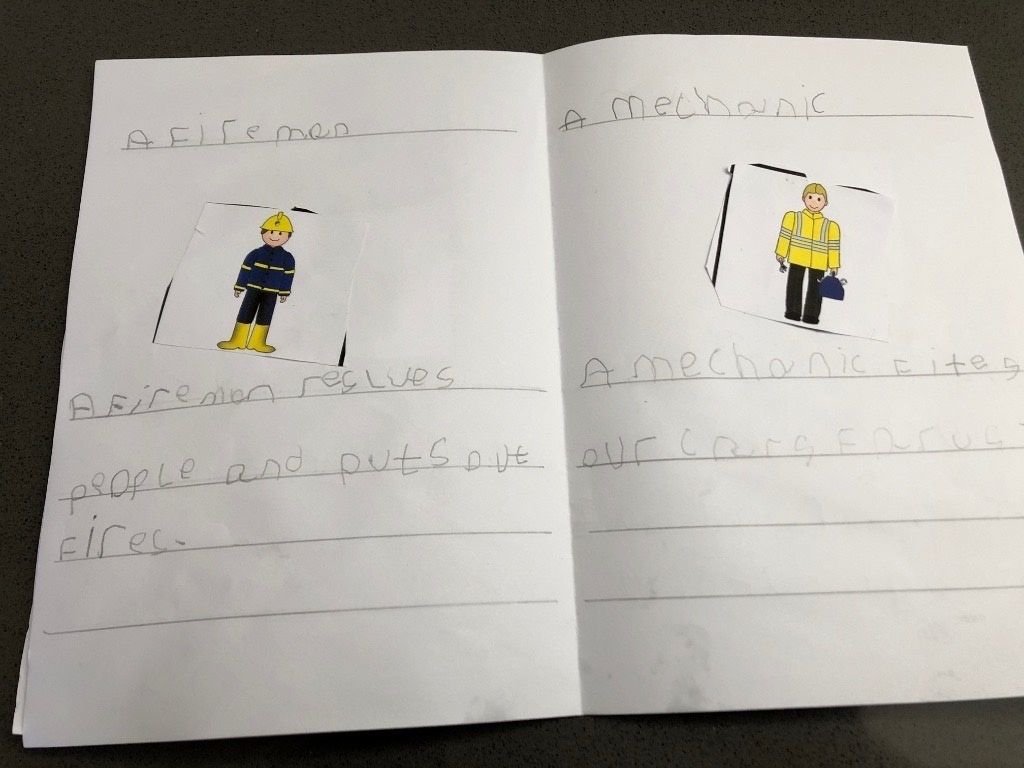 A Fireman
A Fireman rescues
people and puts out
Fires.
A mechanic
A mechanic Fites
our cars F or us